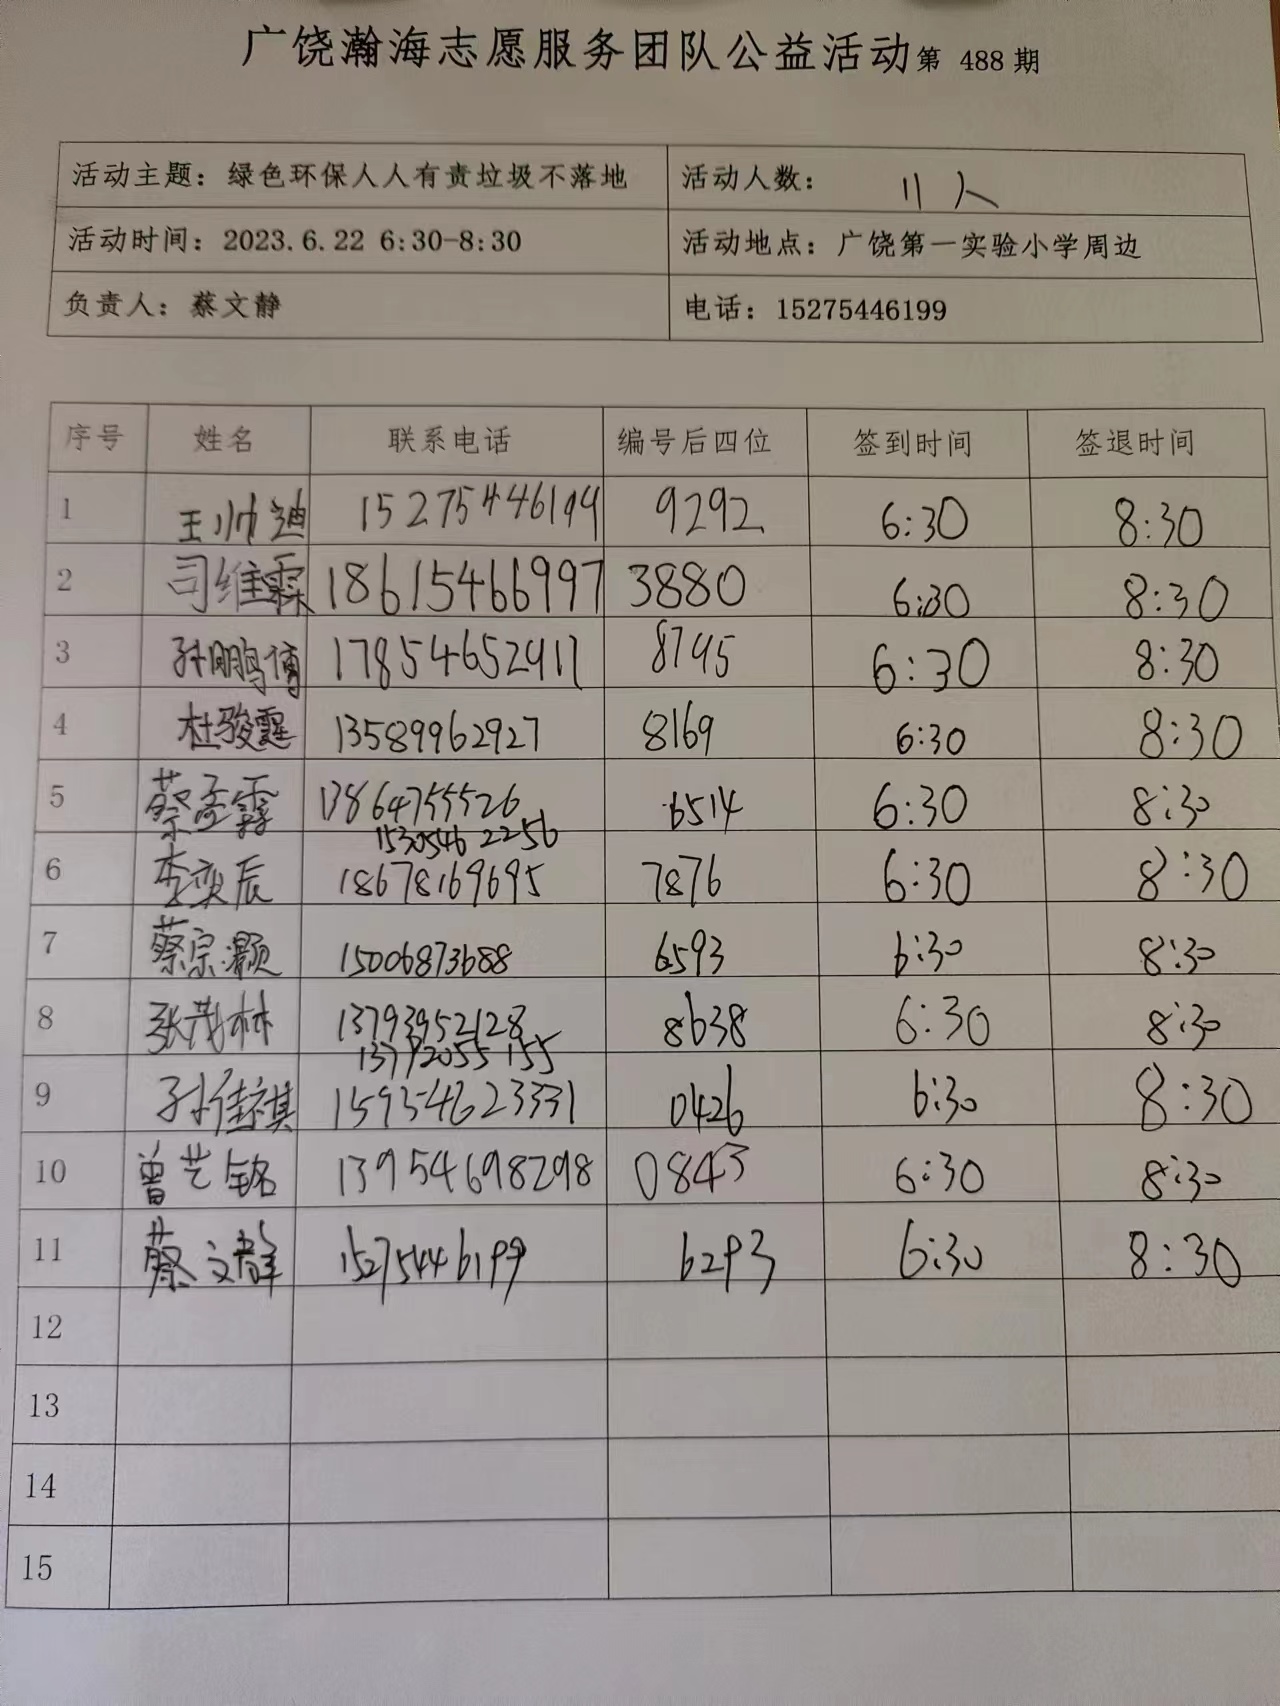 广饶瀚海志愿服务团队公益活动第 488 期
活动主题：绿色环保人人有责垃圾不落地 活动人数： 11人
活动时间：2023.6.22 6:30-8:30 活动地点：广饶第一实验小学周边
负责人：蔡文静 电话：15275446199
序号 姓名 联系电话 编号后四位 签到时间 签退时间
1 王帅迪 15275446194 9292 6:30 8:30
2 司维霖 18615466997 3880 6:30 8:30
3 孙鹏博 17854652911 8795 6:30 8:30
4 杜骏霆 13589962927 8169 6:30 8:30
5 蔡孟霖 13864755526 6514 6:30 8:30
15305462256
6 李奕辰 18678169695 7876 6:30 8:30
7 蔡宗灏 15006873688 6593 6:30 8:30
8 张茂林 13793952128 8638 6:30 8:30
13792055155
9 孙佳祺 15954623331 0426 6:30 8:30
10 曾艺铭 13954698298 0843 6:30 8:30
11 蔡文静 15275446199 6293 6:30 8:30
12
13
14
15